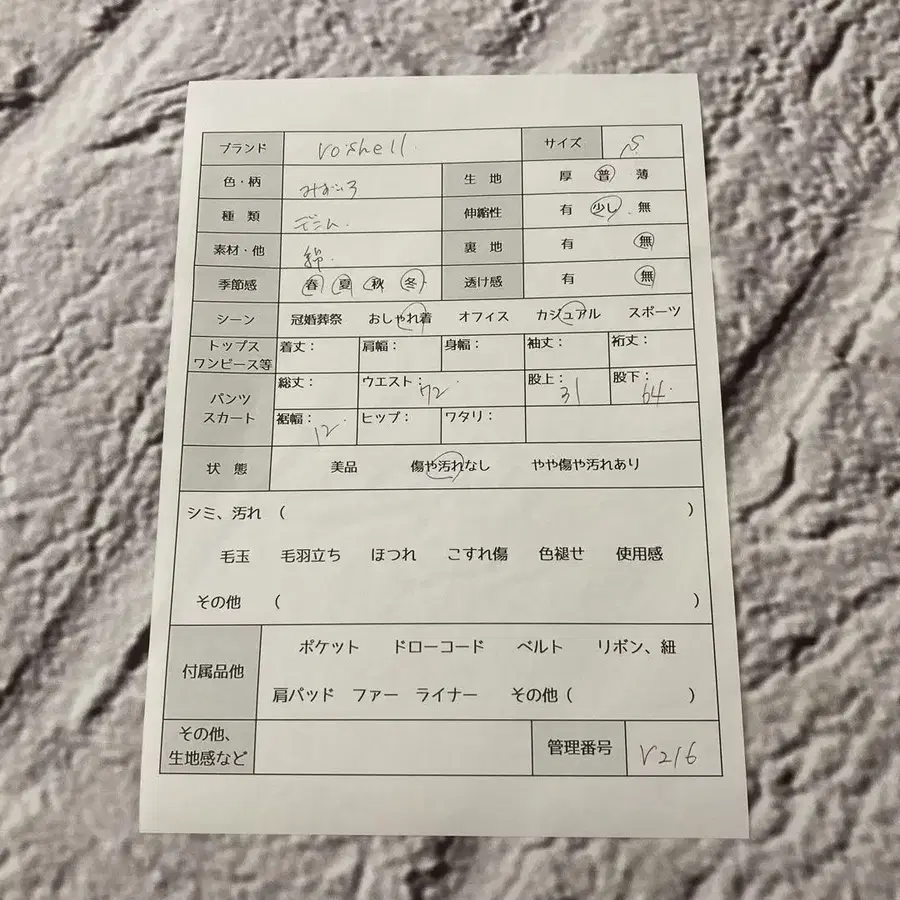 ブランド roshell サイズ S
色・柄 みずいろ 生 地 厚 普 薄
種 類 デニム 伸縮性 有 少し 無
素材・他 綿 裏 地 有 無
季節感 春 夏 秋 冬 透け感 有 無
シーン 冠婚葬祭 おしゃれ着 オフィス カジュアル スポーツ
トップス ワンピース等 着丈: 肩幅: 身幅: 袖丈: 裄丈:
パンツ スカート 総丈: ウエスト: 72 股上: 31 股下: 64
裾幅: 12 ヒップ: ワタリ:
状 態 美品 傷や汚れなし やや傷や汚れあり
シミ、汚れ ( )
毛玉 毛羽立ち ほつれ こすれ傷 色褪せ 使用感
その他 ( )
付属品他 ポケット ドローコード ベルト リボン、紐
肩パッド ファー ライナー その他 ( )
その他、 生地感など 管理番号 V216